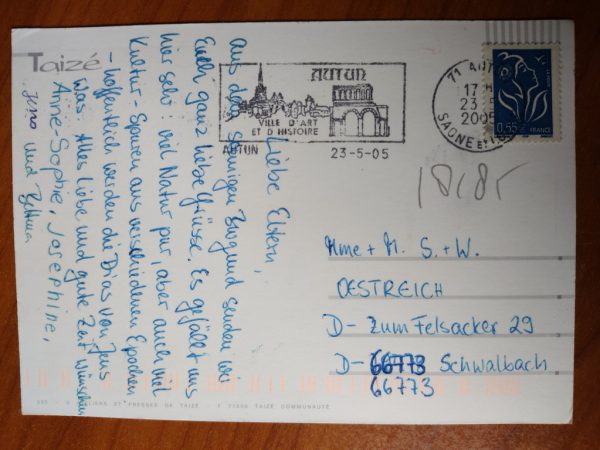 Taizé
Liebe Eltern,
aus dem sonnigen Burgund senden wir
Euch ganz liebe Grüsse. Es gefällt uns
hier sehr: viel Natur pur, aber auch viel
Kultur-Spuren aus verschiedenen Epochen
- hoffentlich werden die Dias von Jens
was. Alles Liebe und gute Zeit wünschen
Anne-Sophie, Josephine,
und
AUTUN
VILLE D'ART
ET D HISTOIRE
AUTUN
23-5-05
71 AUT
17 H
23 5
2005
SAONE ET
0,55 €
FRANCE
18185
Mme + M. S. + W.
OESTREICH
D- Zum Felsacker 29
D- 66773 Schwalbach
66773
ATELIERS ET PRESSES DE TAIZÉ - F 71250 TAIZÉ COMMUNAUTÉ